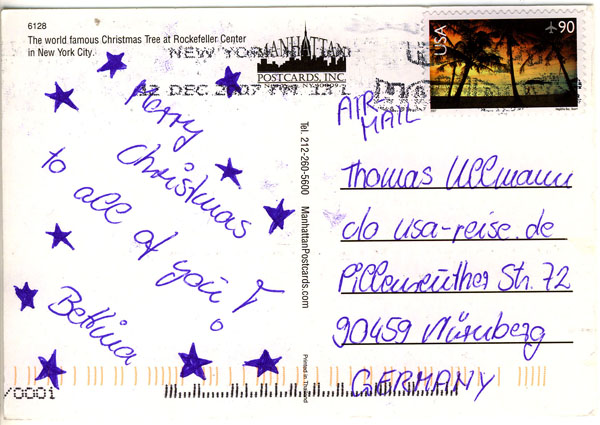 6128
The world famous Christmas Tree at Rockefeller Center
in New York City.
MANHATTAN
POSTCARDS, INC
NEW YORK
12 DEC 2007 PM
USA
90
AIR
MAIL
Merry
Christmas
to all of you!
Bettina
Tel. 212-260-5600 ManhattanPostcards.com
Printed in Thailand
Thomas Ullmann
c/o usa-reise.de
Pillenreuther Str. 72
90459 Nürnberg
GERMANY
/0001